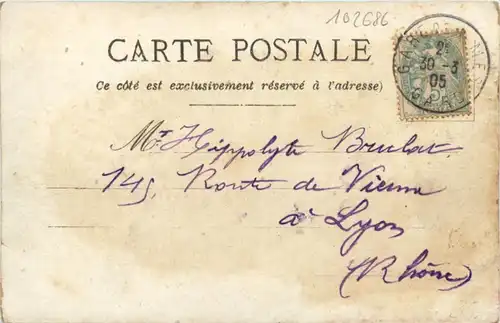 102686
CARTE POSTALE
(Ce côté est exclusivement réservé à l'adresse)
2E
30 -3
05
GARD
Mr Hippolyte Brulat
145, Route de Vienne
à Lyon
(Rhône)